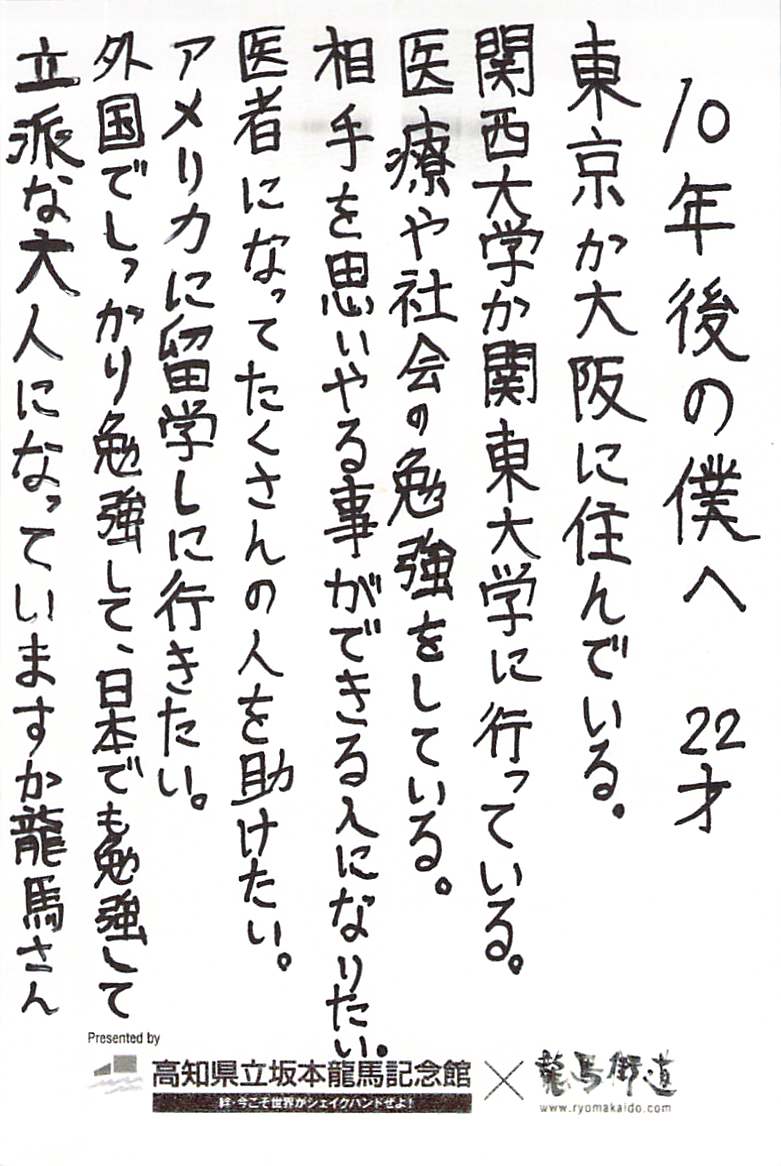 10年後の僕へ 22才
東京か大阪に住んでいる。
関西大学か関東大学に行っている。
医療や社会の勉強をしている。
相手を思いやる事ができる人になりたい。
医者になってたくさんの人を助けたい。
アメリカに留学しに行きたい。
外国でしっかり勉強して、日本でも勉強して
立派な大人になっていますか龍馬さん
Presented by
高知県立坂本龍馬記念館 × 龍馬街道
絆・今こそ世界がシェイクハンドぜよ!
www.ryomakaido.com